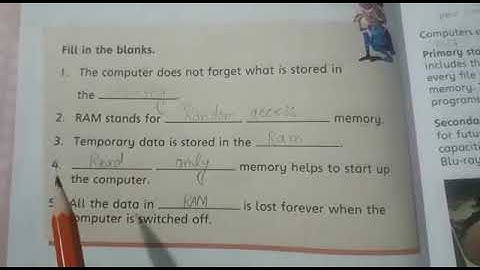 Fill in the blanks.
1. The computer does not forget what is stored in
the
2. RAM stands for Random access memory.
3. Temporary data is stored in the Ram.
4. Read only memory helps to start up
the computer.
5. All the data in RAM is lost forever when the
computer is switched off.
Computers
Primary
includes
every file
memory.
program
Seconda
for futu
capaciti
Blu-ray